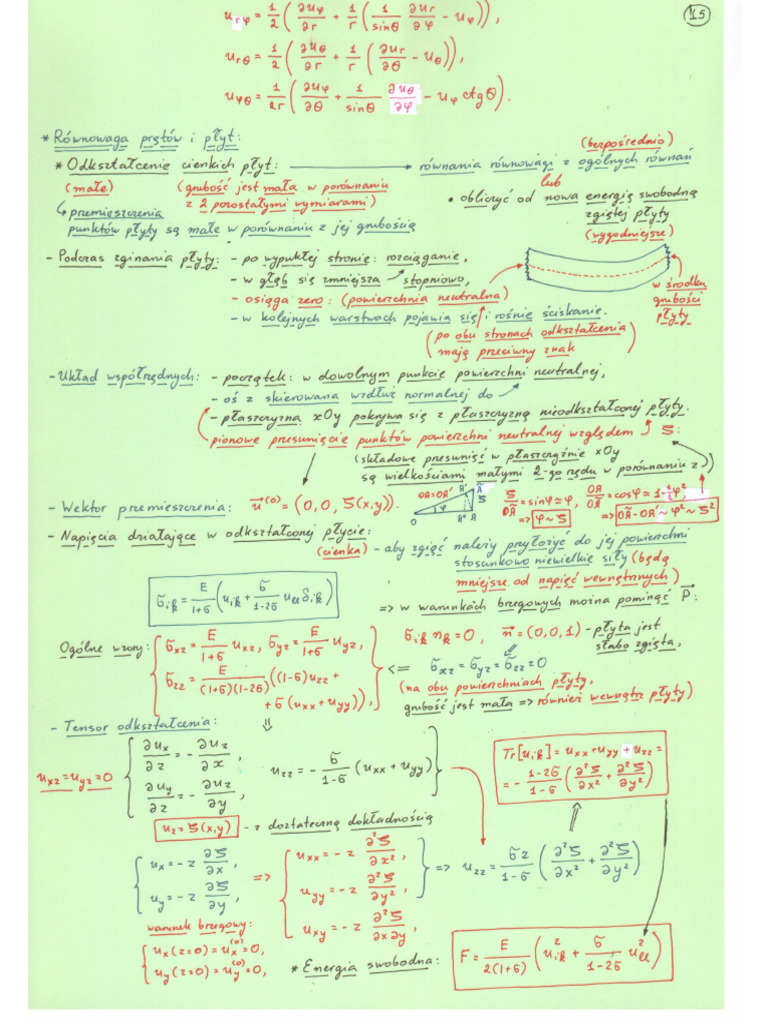 15
u_rφ = 1/2 ( ∂uφ/∂r + 1/r ( 1/sinθ ∂ur/∂φ − uφ ) ),
u_rθ = 1/2 ( ∂uθ/∂r + 1/r ( ∂ur/∂θ − uθ ) ),
u_φθ = 1/2r ( ∂uφ/∂θ + 1/sinθ ∂uθ/∂φ − uφ ctgθ ).
* Równowaga prętów i płyt:
* Odkształcenie cienkich płyt: → równania równowagi z ogólnych równań (bezpośrednio)
(małe) (grubość jest mała w porównaniu
z 2 pozostałymi wymiarami)
lub
• obliczyć od nowa energię swobodną
zgiętej płyty
(wygodniejsze)
↳ przemieszczenia
punktów płyty są małe w porównaniu z jej grubością
- Podczas zginania płyty: - po wypukłej stronie: rozciąganie,
- w głąb się zmniejsza stopniowo,
- osiąga zero: (powierzchnia neutralna)
- w kolejnych warstwach pojawia się i rośnie ściskanie.
w środku
grubości
płyty
(po obu stronach odkształcenia
mają przeciwny znak
- Układ współrzędnych: - początek: w dowolnym punkcie powierzchni neutralnej,
- oś z skierowana wzdłuż normalnej do
- płaszczyzna xOy pokrywa się z płaszczyzną nieodkształconej płyty.
pionowe przesunięcie punktów powierzchni neutralnej względem ζ:
(składowe przesunięć w płaszczyźnie xOy
są wielkościami małymi 2-go rzędu w porównaniu z )
- Wektor przemieszczenia: u⃗⁽⁰⁾ = (0,0, ζ(x,y)).
OA=OA' A' Ã ζ O φ A'' A
ζ/OÃ = sinφ ≃ φ, OA/OÃ = cosφ ≃ 1−½φ²
=> φ ~ ζ => OÃ−OA' ~ φ² ~ ζ²
- Napięcia działające w odkształconej płycie:
(cienka) - aby zgiąć należy przyłożyć do jej powierzchni
stosunkowo niewielkie siły (będą
mniejsze od napięć wewnętrznych)
σ_ik = E/1+σ ( u_ik + σ/1−2σ u_ll δ_ik )
=> w warunkach brzegowych można pominąć P⃗:
Ogólne wzory: σ_xz = E/1+σ u_xz, σ_yz = E/1+σ u_yz,
σ_zz = E/(1+σ)(1−2σ) ((1−σ)u_zz +
+ σ(u_xx + u_yy)),
σ_ik n_k = 0, n⃗ = (0,0,1) - płyta jest
słabo zgięta,
<= σ_xz = σ_yz = σ_zz = 0
(na obu powierzchniach płyty,
grubość jest mała => również wewnątrz płyty)
- Tensor odkształcenia: ⇓
u_xz = u_yz = 0
∂ux/∂z = − ∂uz/∂x,
∂uy/∂z = − ∂uz/∂y
u_zz = − σ/1−σ (u_xx + u_yy)
Tr[u_ik] = u_xx + u_yy + u_zz =
= − 1−2σ/1−σ ( ∂²ζ/∂x² + ∂²ζ/∂y² )
uz = ζ(x,y) - z dostateczną dokładnością
ux = −z ∂ζ/∂x,
uy = −z ∂ζ/∂y,
=>
u_xx = −z ∂²ζ/∂x²,
u_yy = −z ∂²ζ/∂y²,
u_xy = −z ∂²ζ/∂x∂y,
=> u_zz = σz/1−σ ( ∂²ζ/∂x² + ∂²ζ/∂y² )
warunek brzegowy:
ux(z=0) = ux⁽⁰⁾ = 0,
uy(z=0) = uy⁽⁰⁾ = 0,
* Energia swobodna: F = E/2(1+σ) ( u²_ik + σ/1−2σ u²_ll )